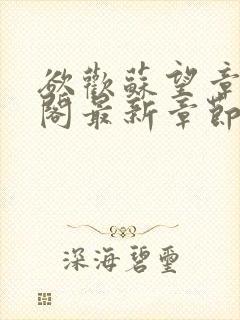 欲歡蘇望章
閣最新章節
深海碧璽